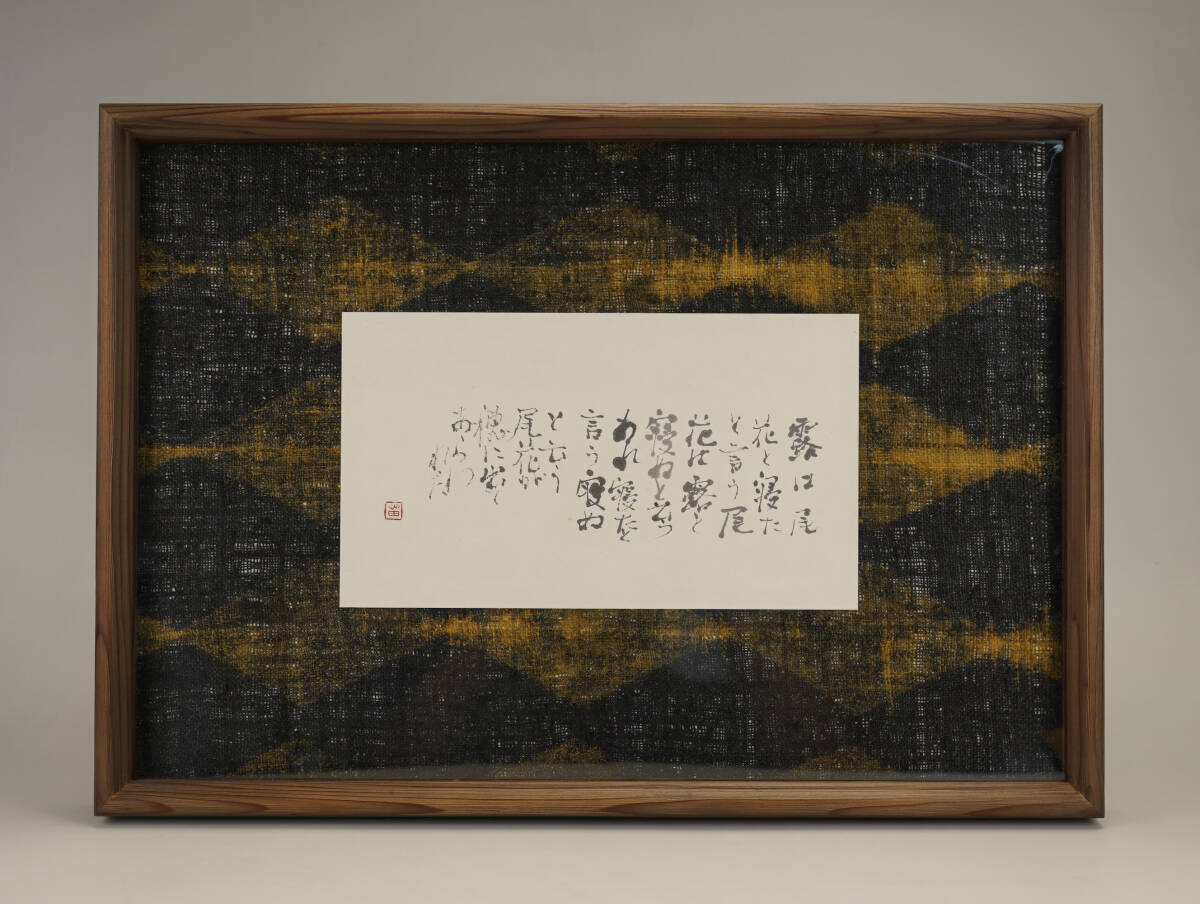 露は尾
花と寝た
と言う尾
花は露と
寝ぬと言う
あれ寝たと
言う寝ぬ
と言う
尾花が
穂に出て
あらわ
苗